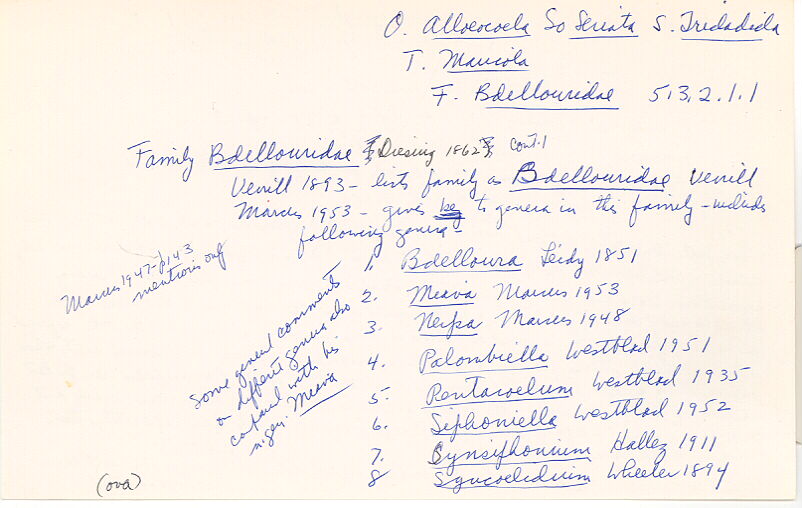 O. Alloeocoela So Seriata S. Tricladida
T. Maricola
F. Bdellouridae 5,3,2.1.1
Family Bdellouridae Diesing 1862 cont.1
Verrill 1893 - lists family as Bdellouridae Verrill
Marcus 1953 - gives key to genera in this family - includes
following genera -
Marcus 1947 - p143
mentions only
Some general comments
on different genera also
compared with his
n. gen. Meava
1. Bdelloura Leidy 1851
2. Meava Marcus 1953
3. Nerpa Marcus 1948
4. Palombiella Westblad 1951
5. Pentacoelum Westblad 1935
6. Siphoniella Westblad 1952
7. Synsiphonium Hallez 1911
8 Syncoelidium Wheeler 1894
(ova)